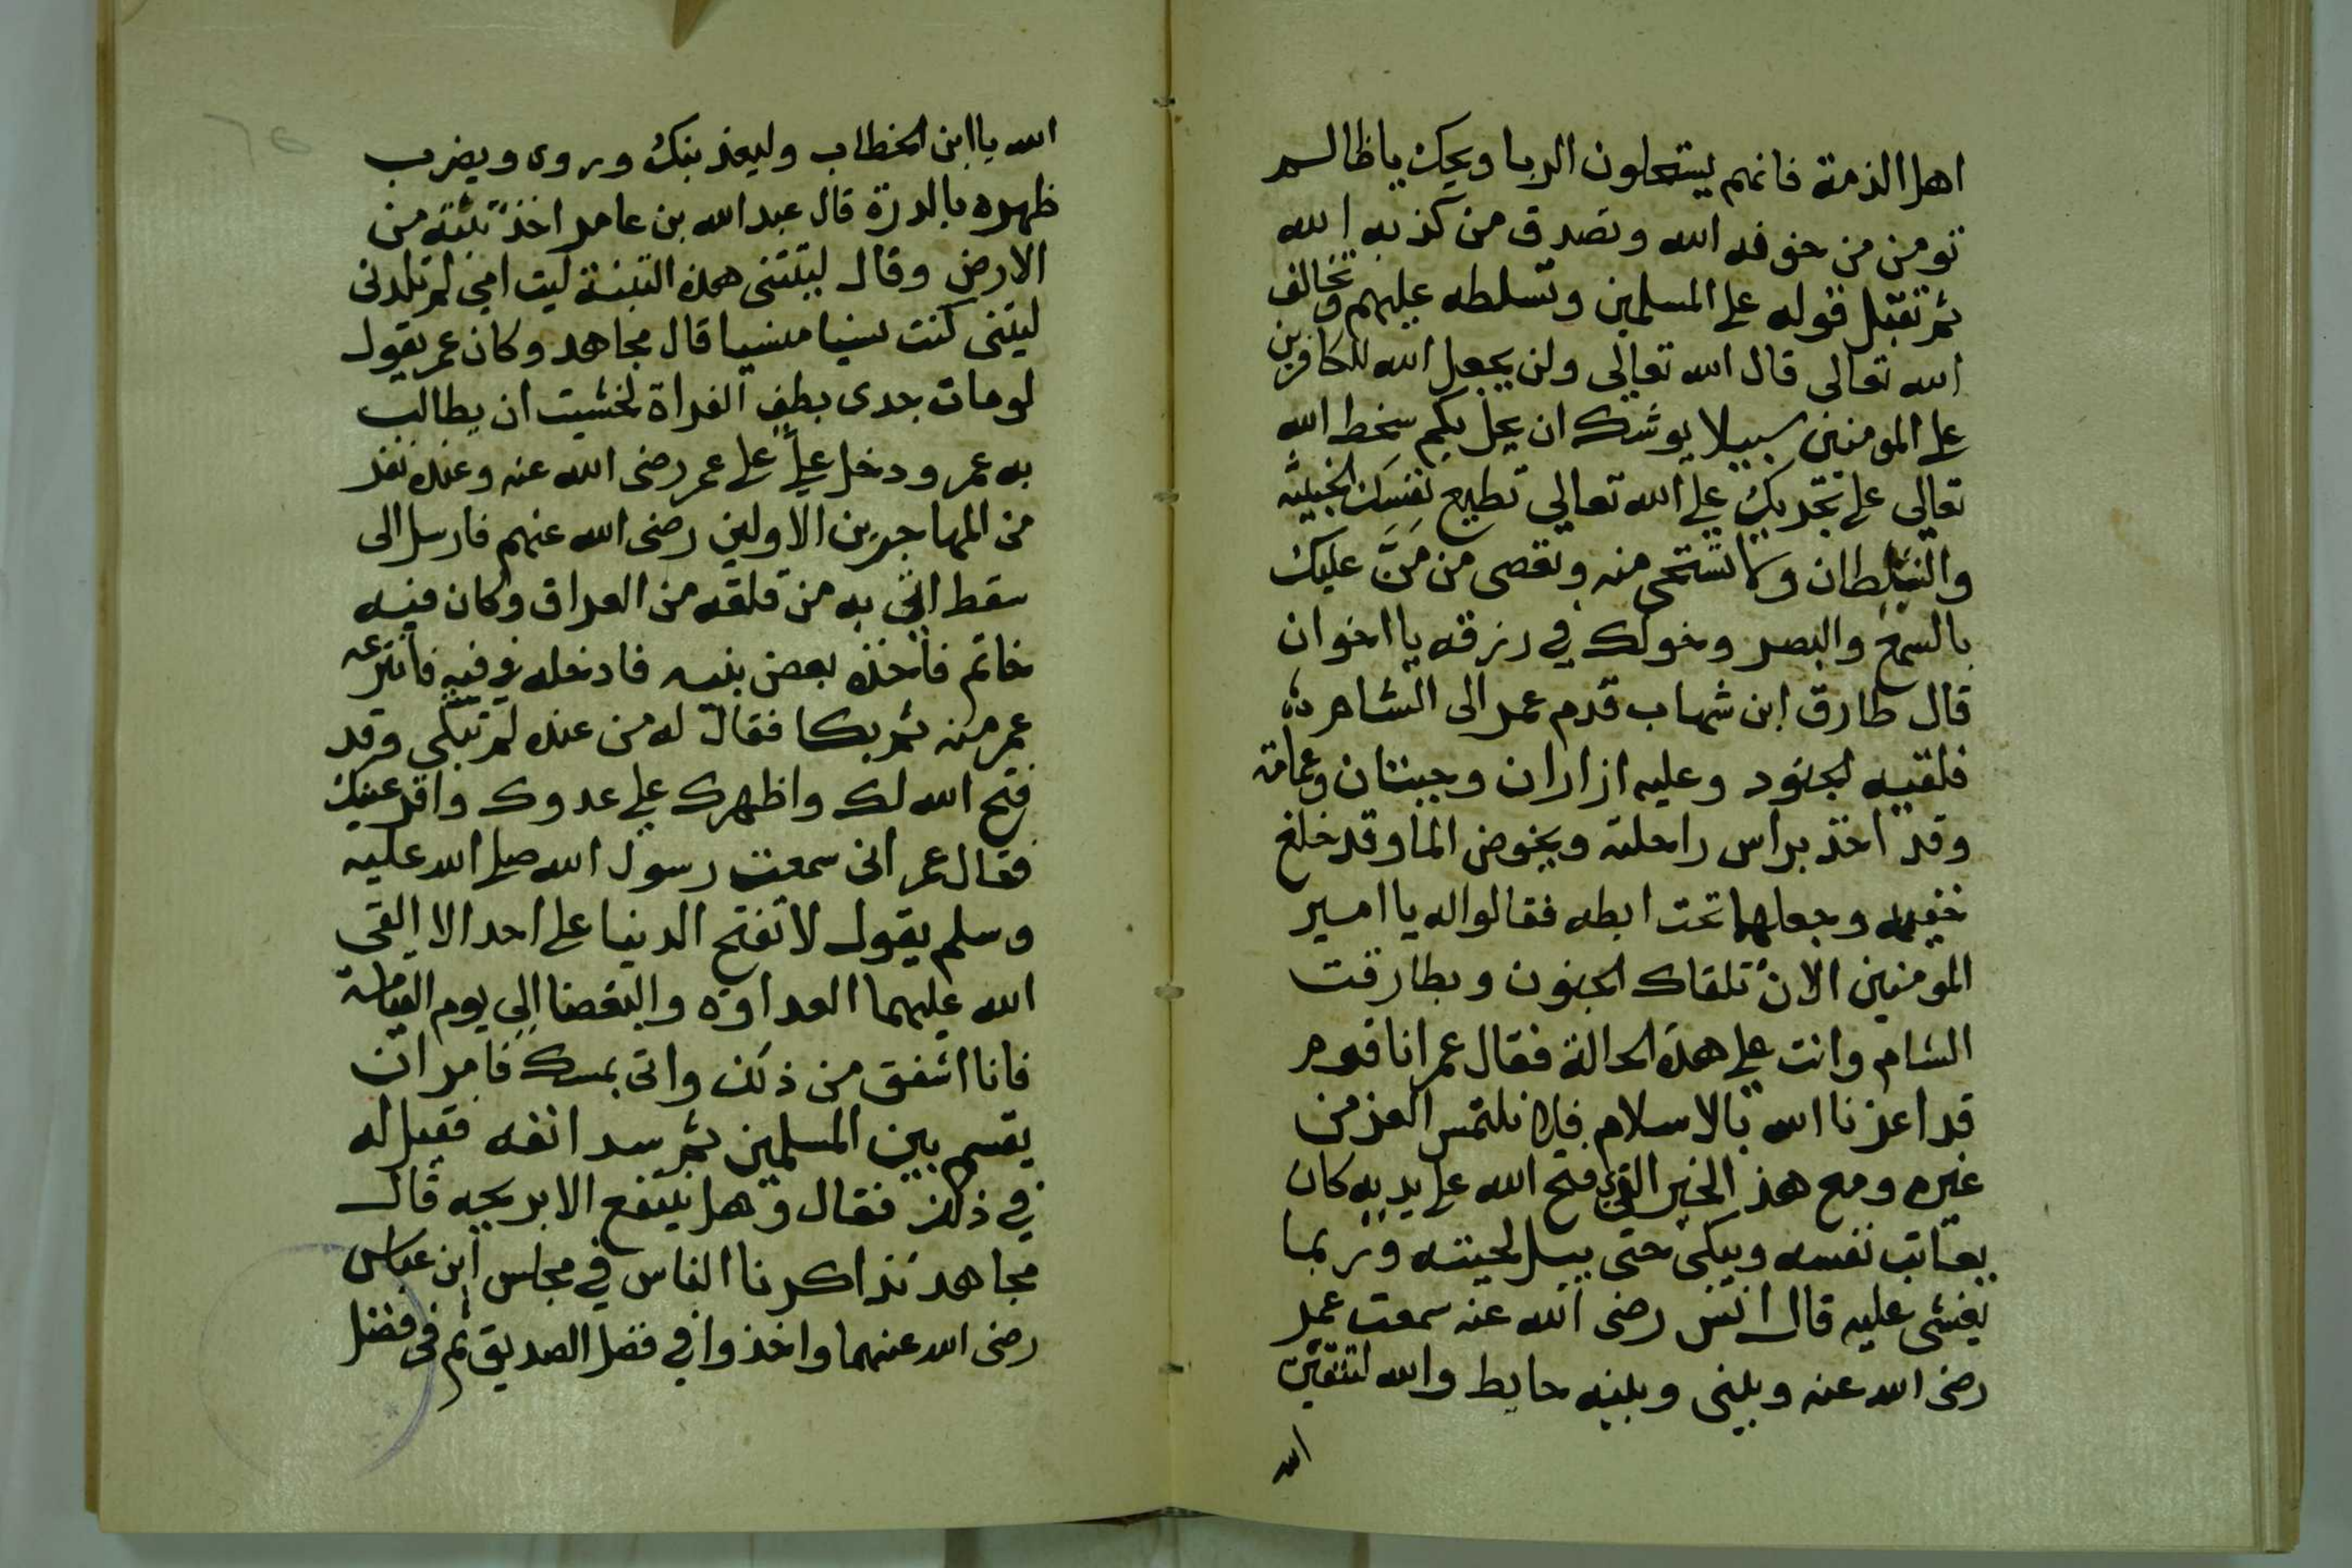 اهل الذمة فانهم يستحلون الربا ويحك يا ظالم
تومن من خوفه الله وتصدق من كذبه الله
ثم تقبل قوله على المسلمين وتسلطه عليهم وتخالف
الله تعالى قال الله تعالى ولن يجعل الله للكافرين
على المومنين سبيلا يوشك ان يحل بكم سخط الله
تعالى على تجريك على الله تعالى تطيع نفسك الخبيثه
والشيطان ولا تستحي منه وتعصى من مَنَّ عليك
بالسمع والبصر وخولك في رزقه يا اخوان
قال طارق ابن شهاب قدم عمر الى الشام
فلقيه الجنود وعليه ازاران وجبتان وعمامة
وقد اخذ براس راحلته ويخوض الما وقد خلع
خفيه وجعلهما تحت ابطه فقالوا له يا امير
المومنين الان تلقاك الجنون وبطارقت
الشام وانت على هذه الحالة فقال عمر انا قوم
قد اعزنا الله بالاسلام فلا نلتمس العز من
غيره ومع هذ الخير الذي فتح الله على يديه كان
يعاتب نفسه ويبكى حتى يبل لحيته وربما
يغشى عليه قال انس رضى الله عنه سمعت عمر
رضى الله عنه وبينى وبينه حايط والله لتتقين
الله
الله يا ابن الخطاب وليعذبنك وروى ويضرب
ظهره بالدرة قال عبد الله بن عامر اخذ تبنة من
الارض وقال ليتنى هذه التبنة ليت امي لم تلدنى
ليتنى كنت نسيا منسيا قال مجاهد وكان عمر يقول
لو مات جدى بطف الفراة لخشيت ان يطالب
به عمر ودخل على على عمر رضى الله عنه وعنده نفر
من المهاجرين الاولين رضى الله عنهم فارسل الى
سقط اتي به من قلقه من العراق وكان فيه
خاتم فاخذه بعض بنيه فادخله في فيه فانتزعه
عمر منه ثم بكا فقال له من عنده لم تبكي وقد
فتح الله لك واظهرك على عدوك واقر عينك
فقال عمر انى سمعت رسول الله صلى الله عليه
وسلم يقول لا تفتح الدنيا على احد الا القى
الله عليهما العداوة والبغضا الى يوم القيامة
فانا اشفق من ذلك واتى بمسك فامر ان
يقسم بين المسلمين ثم سد انفه فقيل له
في ذلك فقال وهل ينتفع الا بريحه قال
مجاهد تذاكرنا الناس في مجلس ابن عباس
رضى الله عنهما واخذوا في فضل الصديق ثم فى فضل